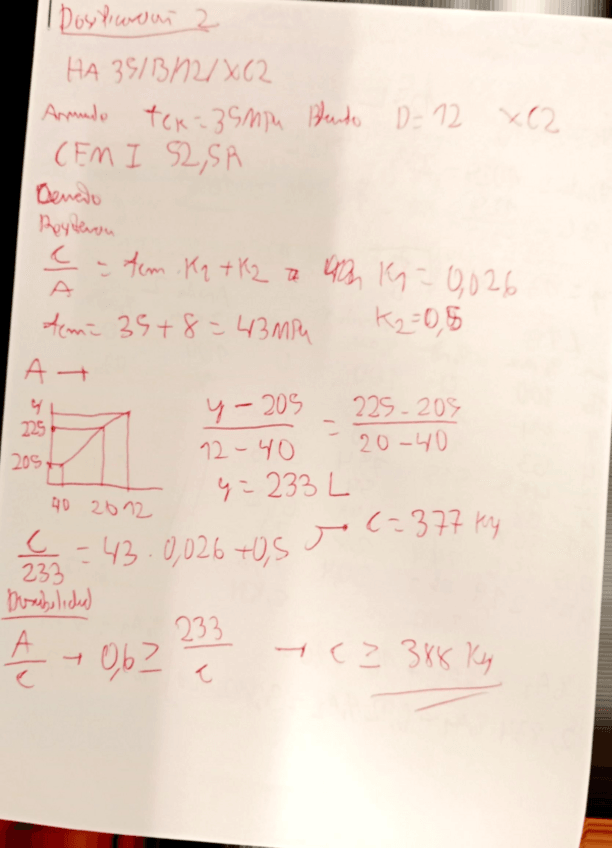 Dosificación 2
HA 35/B/12/XC2
Armado fck = 35MPa Blando D = 12 XC2
CEM I 52,5R
C/A = fcm · K1 + K2 K1 = 0,026
fcm = 35 + 8 = 43MPa K2 = 0,5
A →
y
225
205
40 20 12
(y - 205)/(12 - 40) = (225 - 205)/(20 - 40)
y = 233 L
C/233 = 43 · 0,026 + 0,5 → C = 377 Kg
Durabilidad
A/C → 0,6 ≥ 233/C → C ≥ 388 Kg